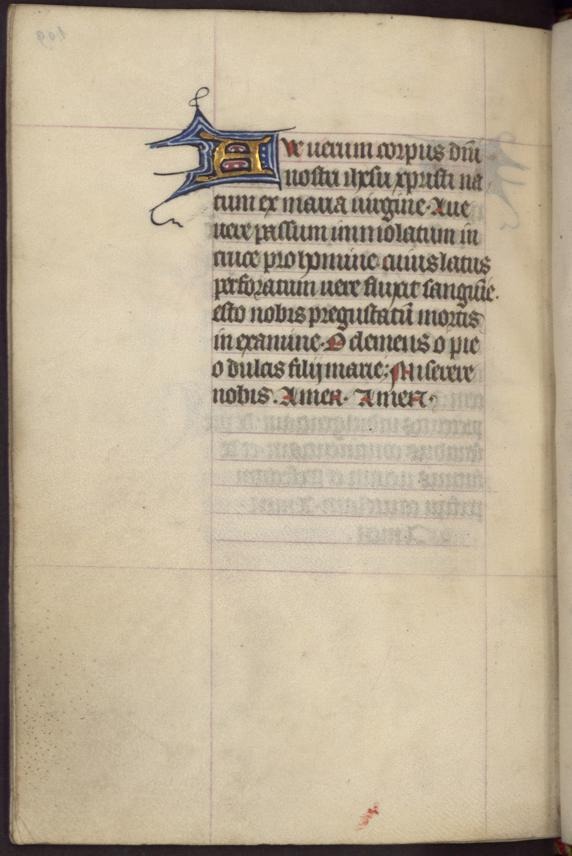 Ave uerum corpus dn̄i
nostri ihesu xpristi na
tum ex maria uirgine. Aue
uere passum immolatum in
cruce pro homine. cuius latus
perforatum uere fluxit sanguīe.
esto nobis pregustatū mortis
in examine. O clemens o pie
o dulcis filij marie: Miserere
nobis. Amen. Amen.